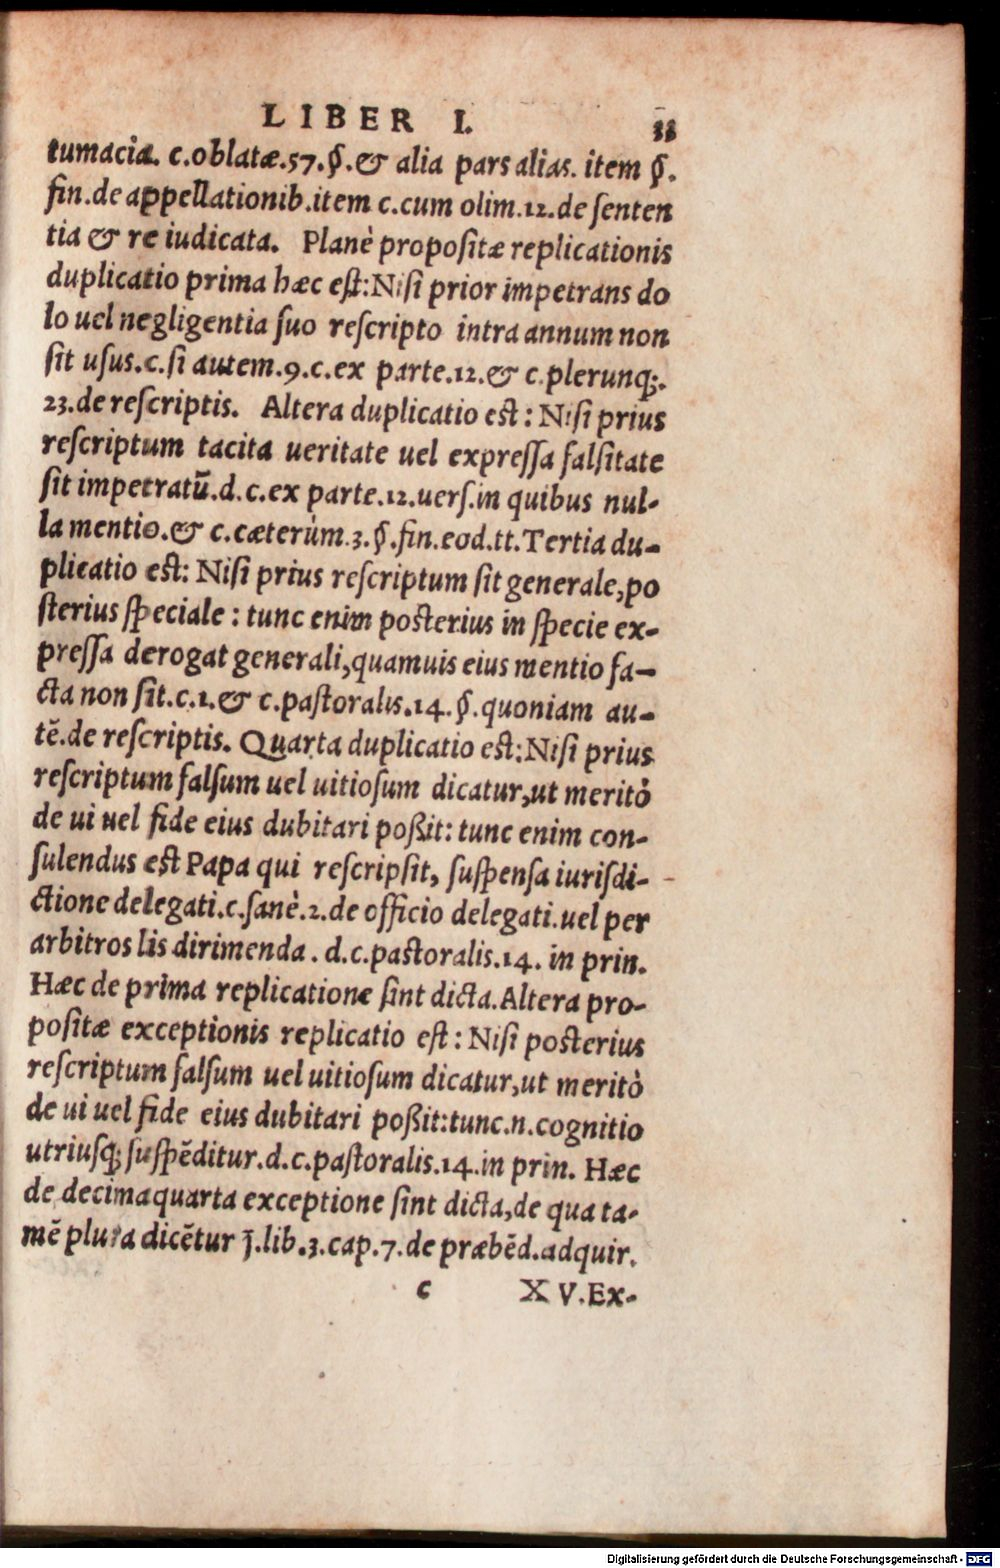 LIBER I. 33
tumacia. c.oblatæ.57.§.& alia pars alias. item §.
fin.de appellationib.item c.cum olim.12.de ſenten
tia & re iudicata. Planè propoſitæ replicationis
duplicatio prima hæc eſt:Niſi prior impetrans do
lo uel negligentia ſuo reſcripto intra annum non
ſit uſus.c.ſi autem.9.c.ex parte.12.& c.plerunq;.
23.de reſcriptis. Altera duplicatio eſt: Niſi prius
reſcriptum tacita ueritate uel expreſſa falſitate
ſit impetratū.d.c.ex parte.12.uerſ.in quibus nul-
la mentio.& c.cæterùm.3.§.fin.eod.tt.Tertia du-
plicatio eſt: Niſi prius reſcriptum ſit generale,po
ſterius ſpeciale: tunc enim poſterius in ſpecie ex-
preſſa derogat generali,quamuis eius mentio fa-
cta non ſit.c.1.& c.paſtoralis.14.§.quoniam au-
tē.de reſcriptis. Quarta duplicatio eſt:Niſi prius
reſcriptum falſum uel uitioſum dicatur,ut meritò
de ui uel fide eius dubitari poßit: tunc enim con-
ſulendus eſt Papa qui reſcripſit, ſuſpenſa iurisdi-
ctione delegati.c.ſanè.2.de officio delegati.uel per
arbitros lis dirimenda. d.c.paſtoralis.14. in prin.
Hæc de prima replicatione ſint dicta.Altera pro-
poſitæ exceptionis replicatio eſt: Niſi poſterius
reſcriptum falſum uel uitioſum dicatur,ut meritò
de ui uel fide eius dubitari poßit:tunc.n.cognitio
utriuſq; ſuſpēditur.d.c.paſtoralis.14.in prin. Hæc
de decimaquarta exceptione ſint dicta,de qua ta-
mē plura dicētur J.lib.3.cap.7.de præbēd.adquir.
c XV.Ex-
Digitalisierung gefördert durch die Deutsche Forschungsgemeinschaft - DFG